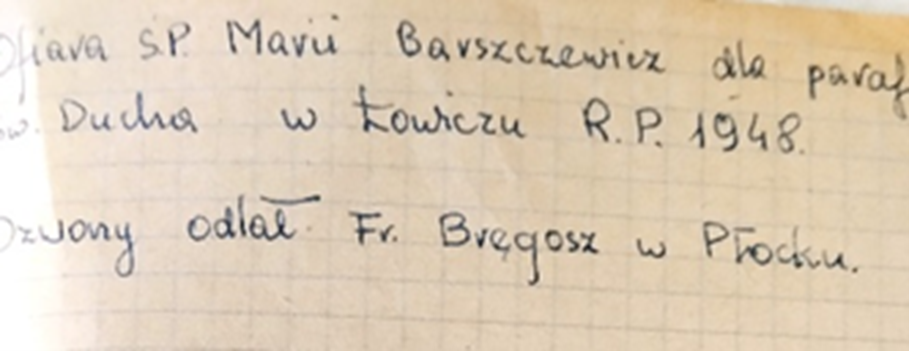 Ofiara Ś.P. Marii Barszczewicz dla paraf
św. Ducha w Łowiczu R.P. 1948.
Dzwony odlał Fr. Bręgosz w Płocku.